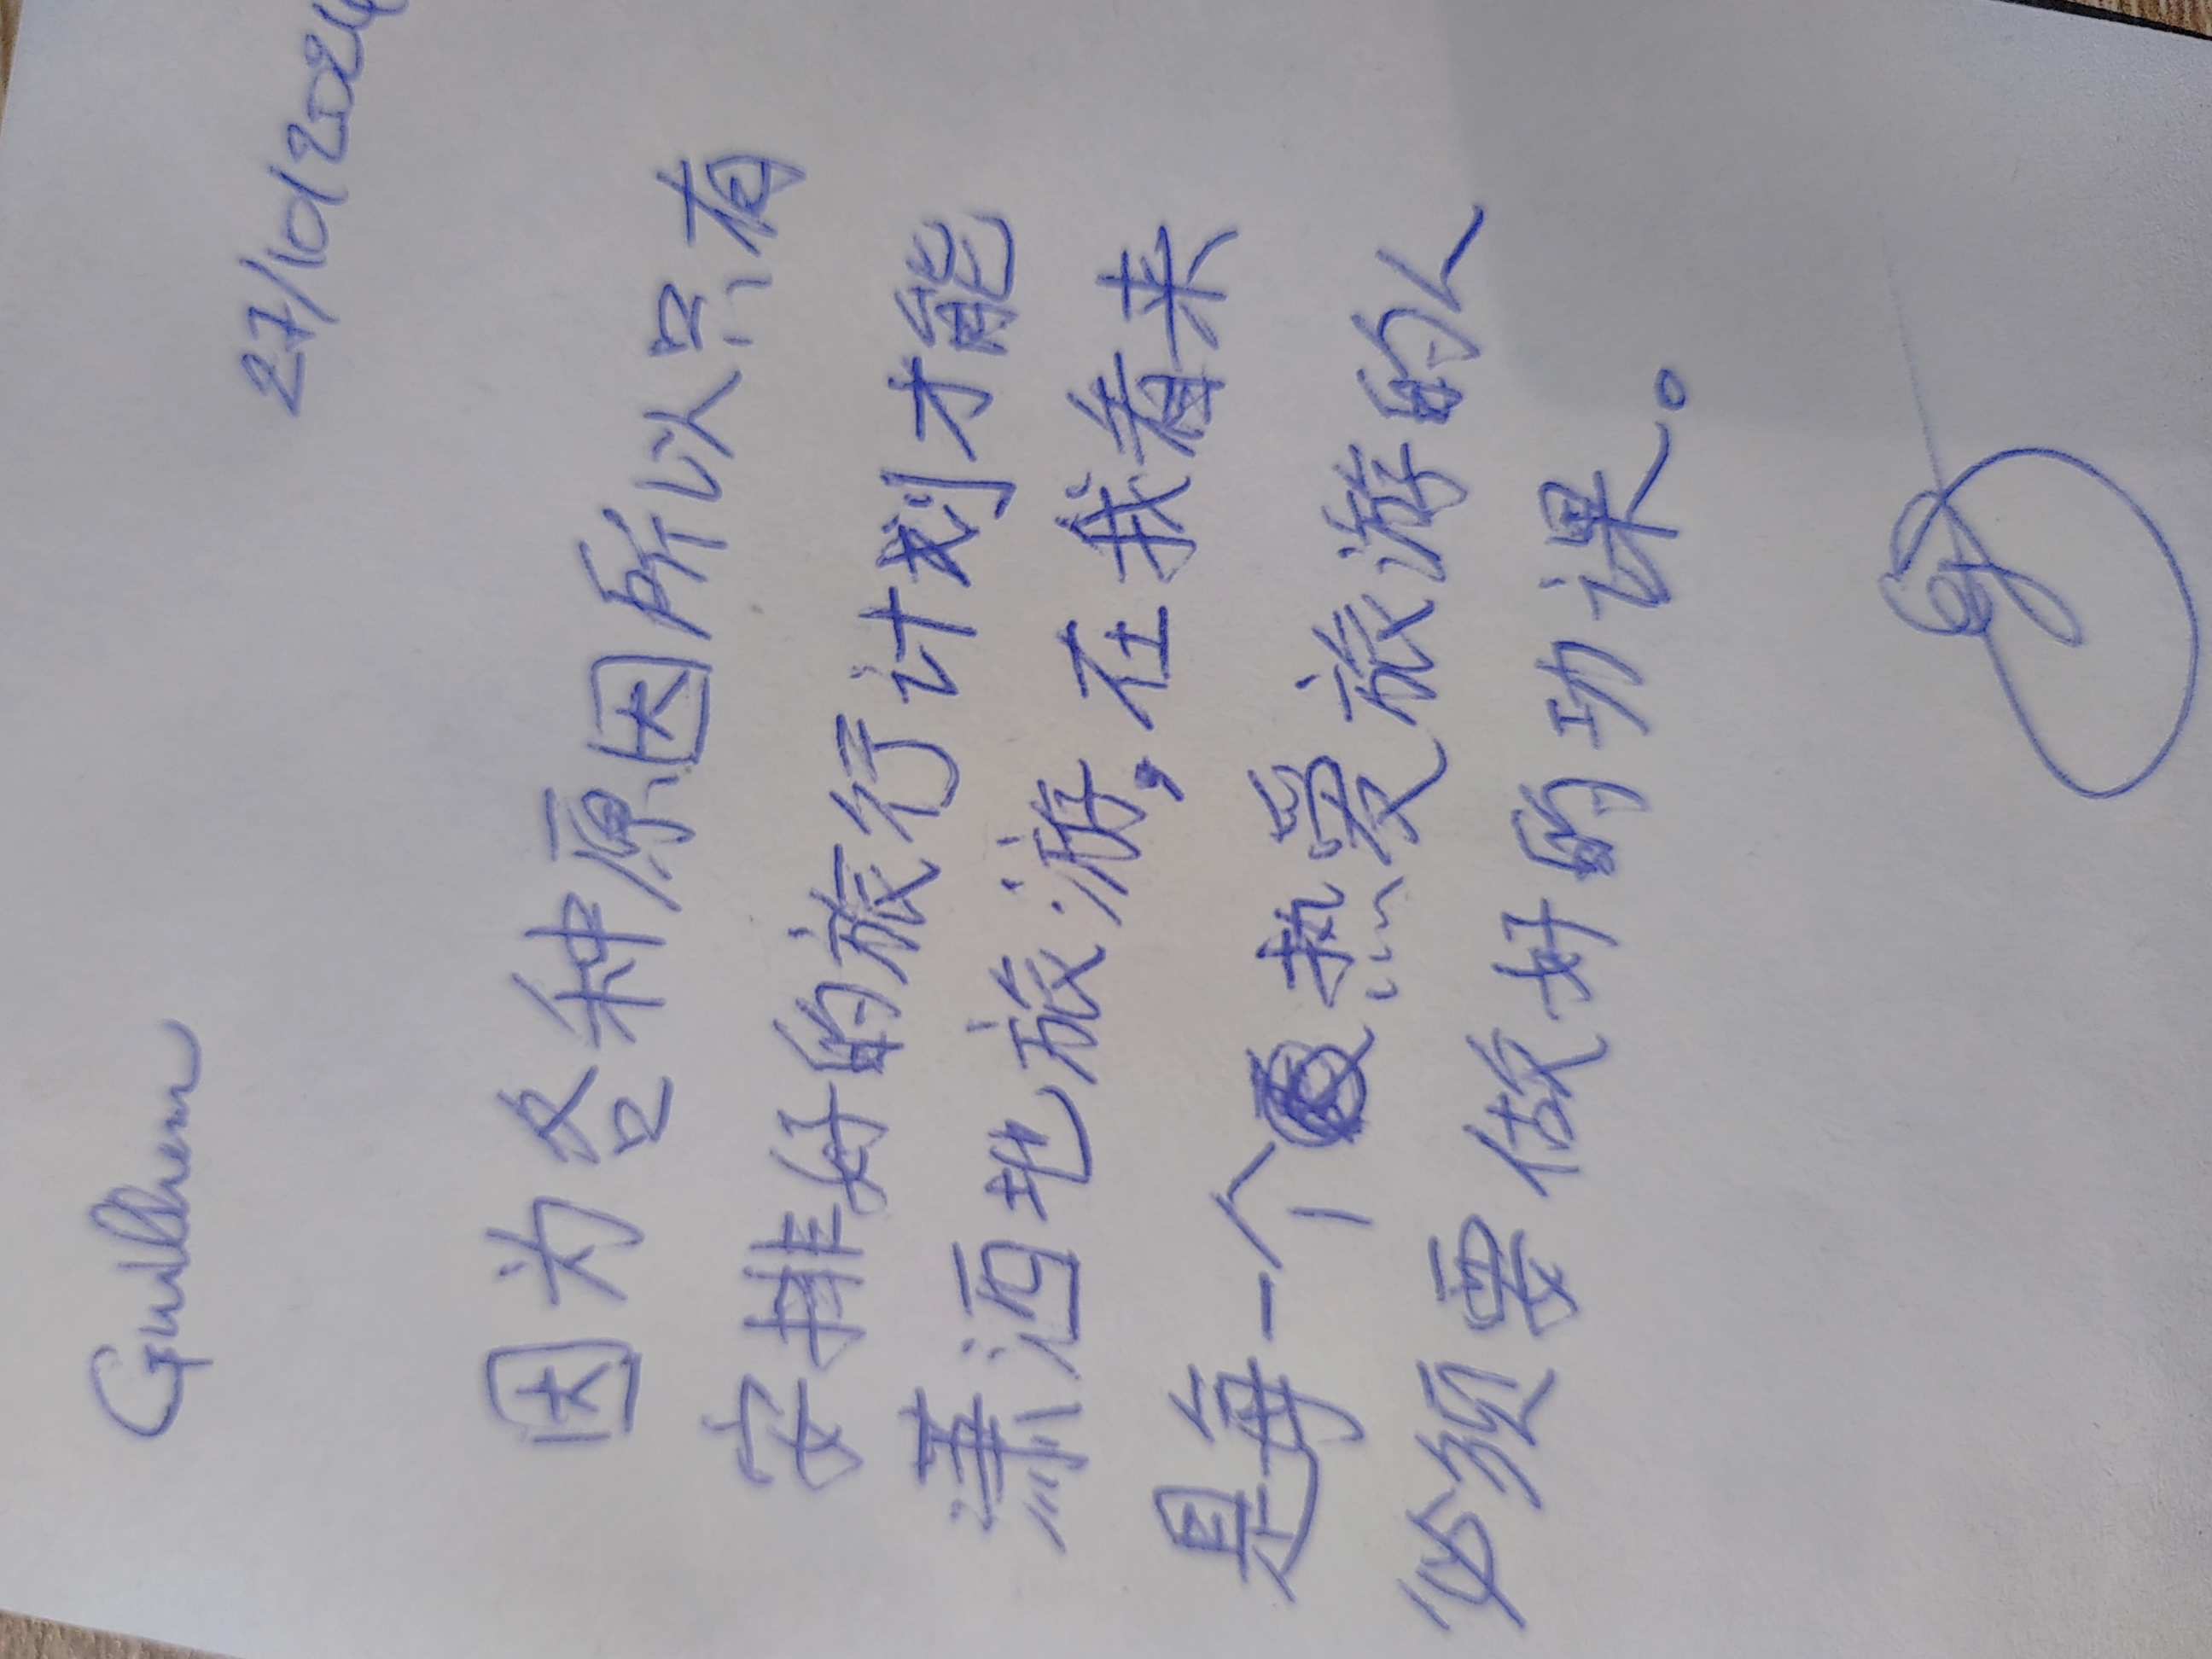 Guilhem
27/10/2024
因为各种原因所以只有
安排好的旅行计划才能
潇洒地旅游，在我看来
是每一个热爱旅游的人
必须要做好的功课。